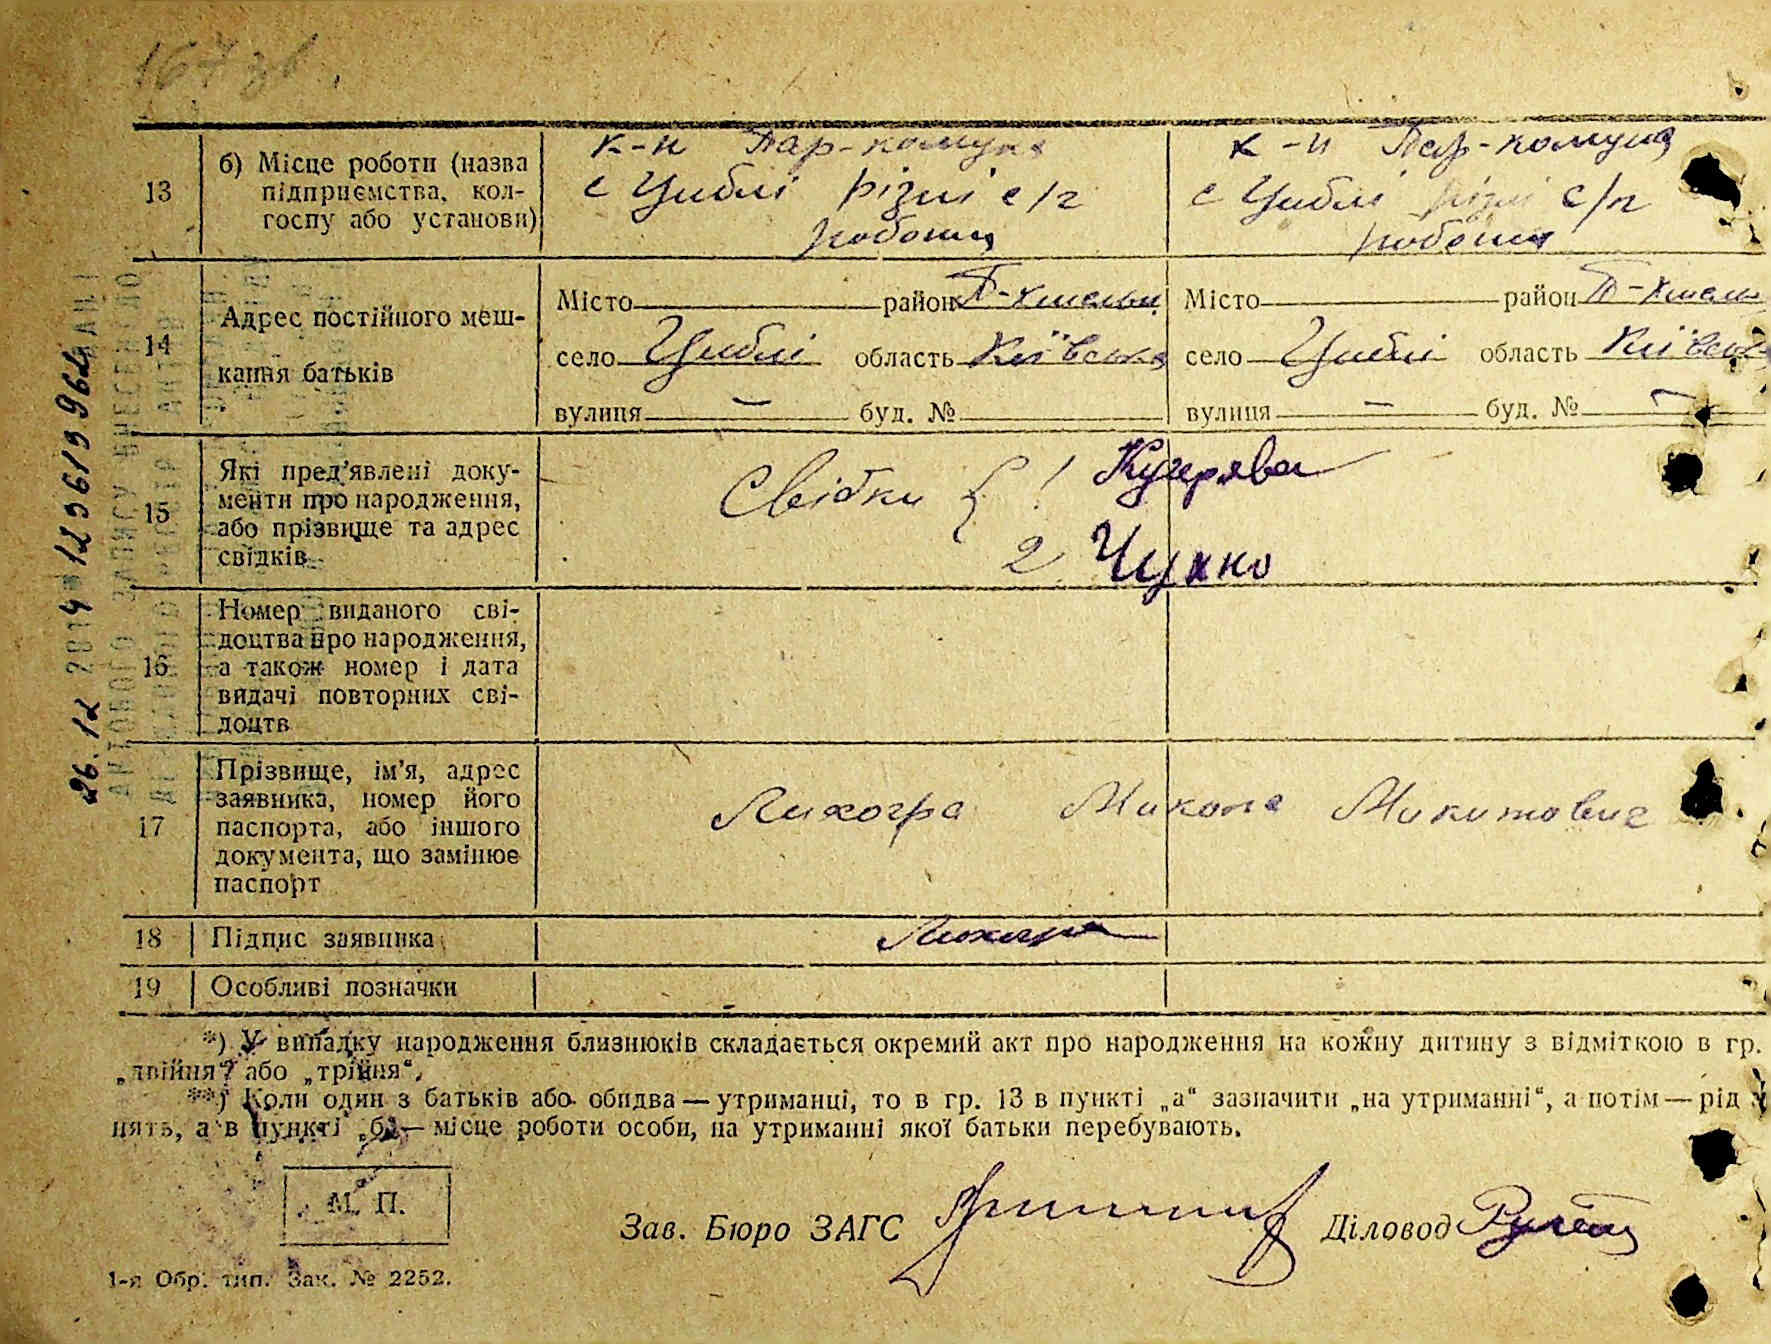 167 зв.
13
б) Місце роботи (назва
підприємства, кол-
госпу або установи)
к-п Пар-комуна
с Циблі різні с/г
роботи
к-п Пар-комуна
с Циблі різні с/г
роботи
14
Адрес постійного меш-
кання батьків
Місто район П-Хмельн
село Циблі область Київська
вулиця — буд. №
Місто район П-Хмельн
село Циблі область Київська
вулиця — буд. № —
15
Які пред'явлені доку-
менти про народження,
або прізвище та адрес
свідків
Свідки { 1 Кучерява
2 Чухно
16
Номер виданого сві-
доцтва про народження,
а також номер і дата
видачі повторних сві-
доцтв
17
Прізвище, ім'я, адрес
заявника, номер його
паспорта, або іншого
документа, що замінює
паспорт
Лихогра Микола Микитович
18 Підпис заявника
Лихогра
19 Особливі позначки
*) У випадку народження близнюків складається окремий акт про народження на кожну дитину з відміткою в гр.
„двійня" або „трійня".
**) Коли один з батьків або обидва — утриманці, то в гр. 13 в пункті „а" зазначити „на утриманні", а потім — рід
нять, а в пункті „б" — місце роботи особи, на утриманні якої батьки перебувають.
М. П.
Зав. Бюро ЗАГС
Діловод
1-я Обр. тип. Зак. № 2252.
26.12 2014 12361996
АКТОВОГО ЗАПИСУ ВНЕСЕНО